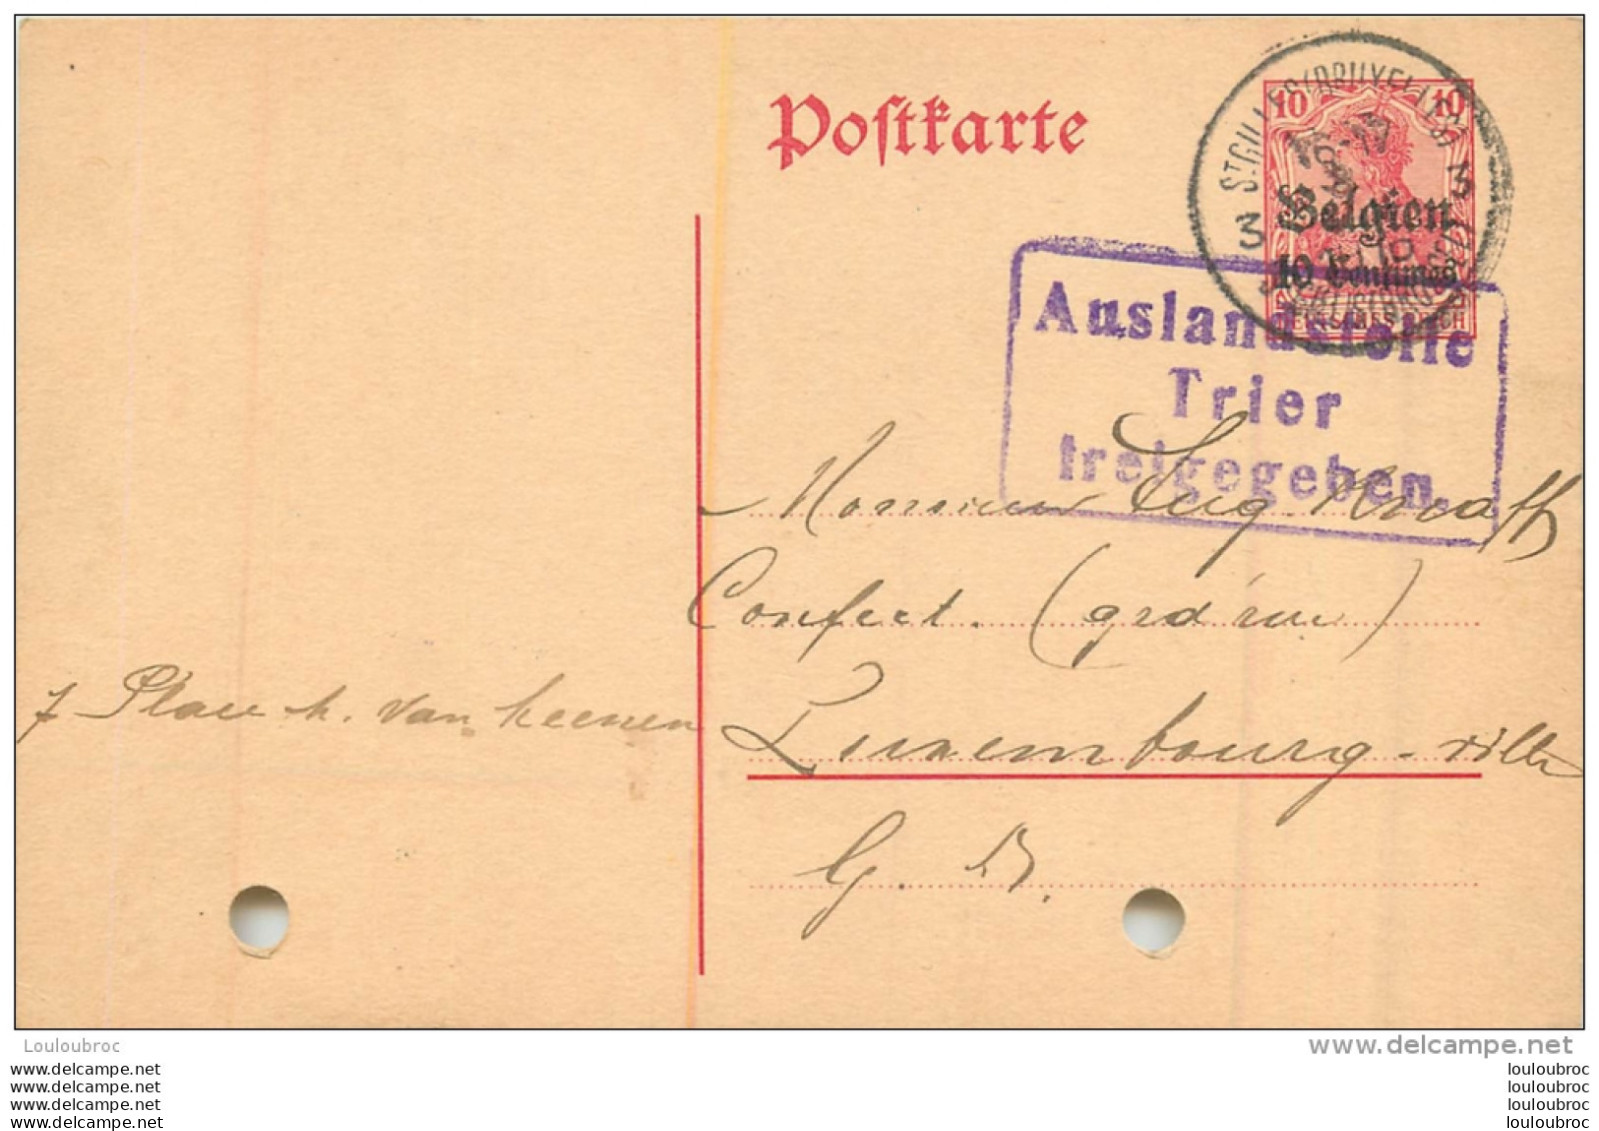 Postkarte
10 10
Belgien
10 Centimes
ST GILLES (BRUXELLES)
3 3
Auslandstelle
Trier
freigegeben.
Monsieur Eug. Knaff
Confect. (grd'rue)
Luxembourg-ville
G. D.
7 Place h. van Leenen
Louloubroc
www.delcampe.net
www.delcampe.net
www.delcampe.net
www.delcampe.net
www.delcampe.net
louloubroc
louloubroc
louloubroc
louloubroc